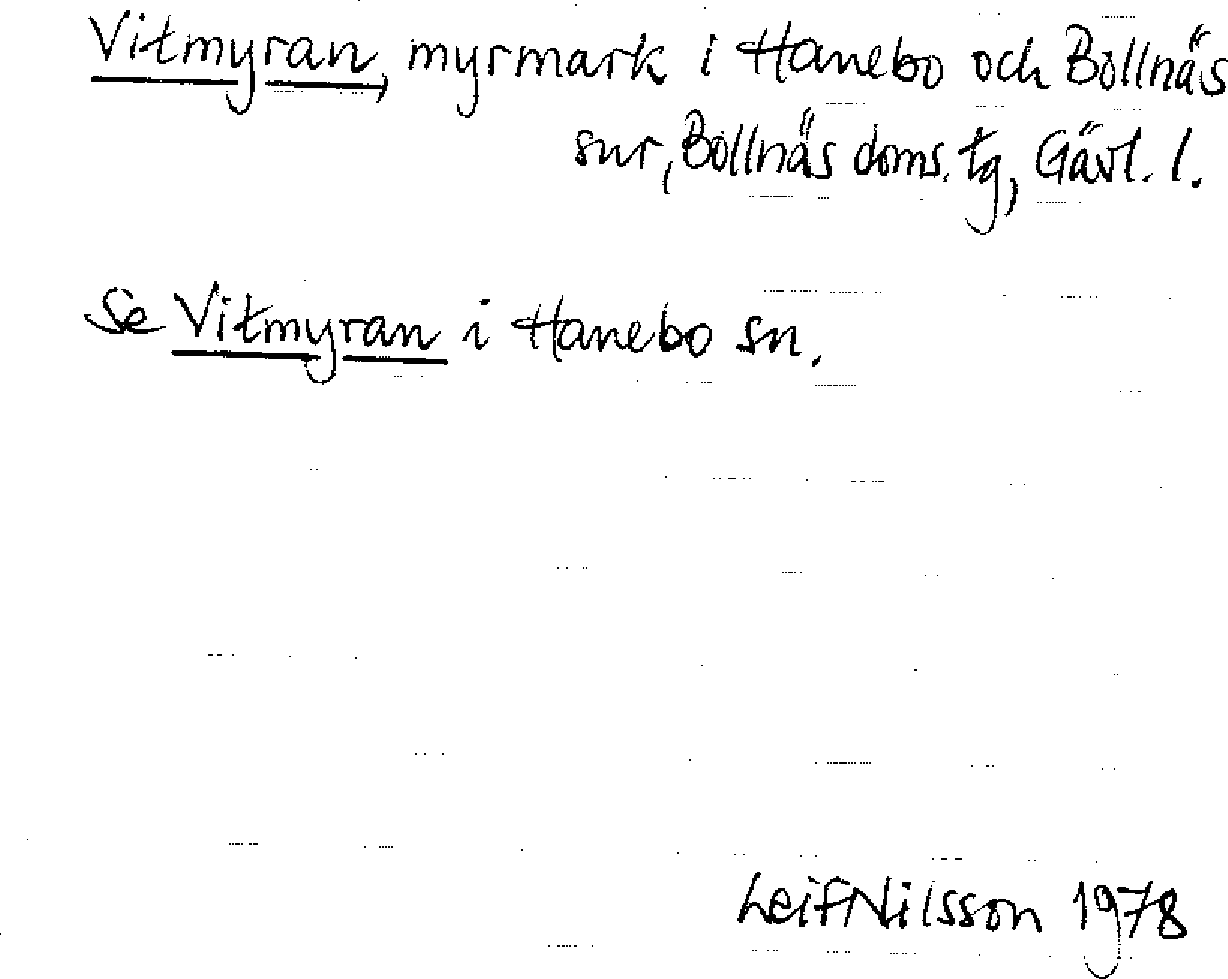 Vitmyran, myrmark i Hanebo och Bollnäs
snr, Bollnäs doms. tg, Gävl. l.
Se Vitmyran i Hanebo sn.
Leif Nilsson 1978